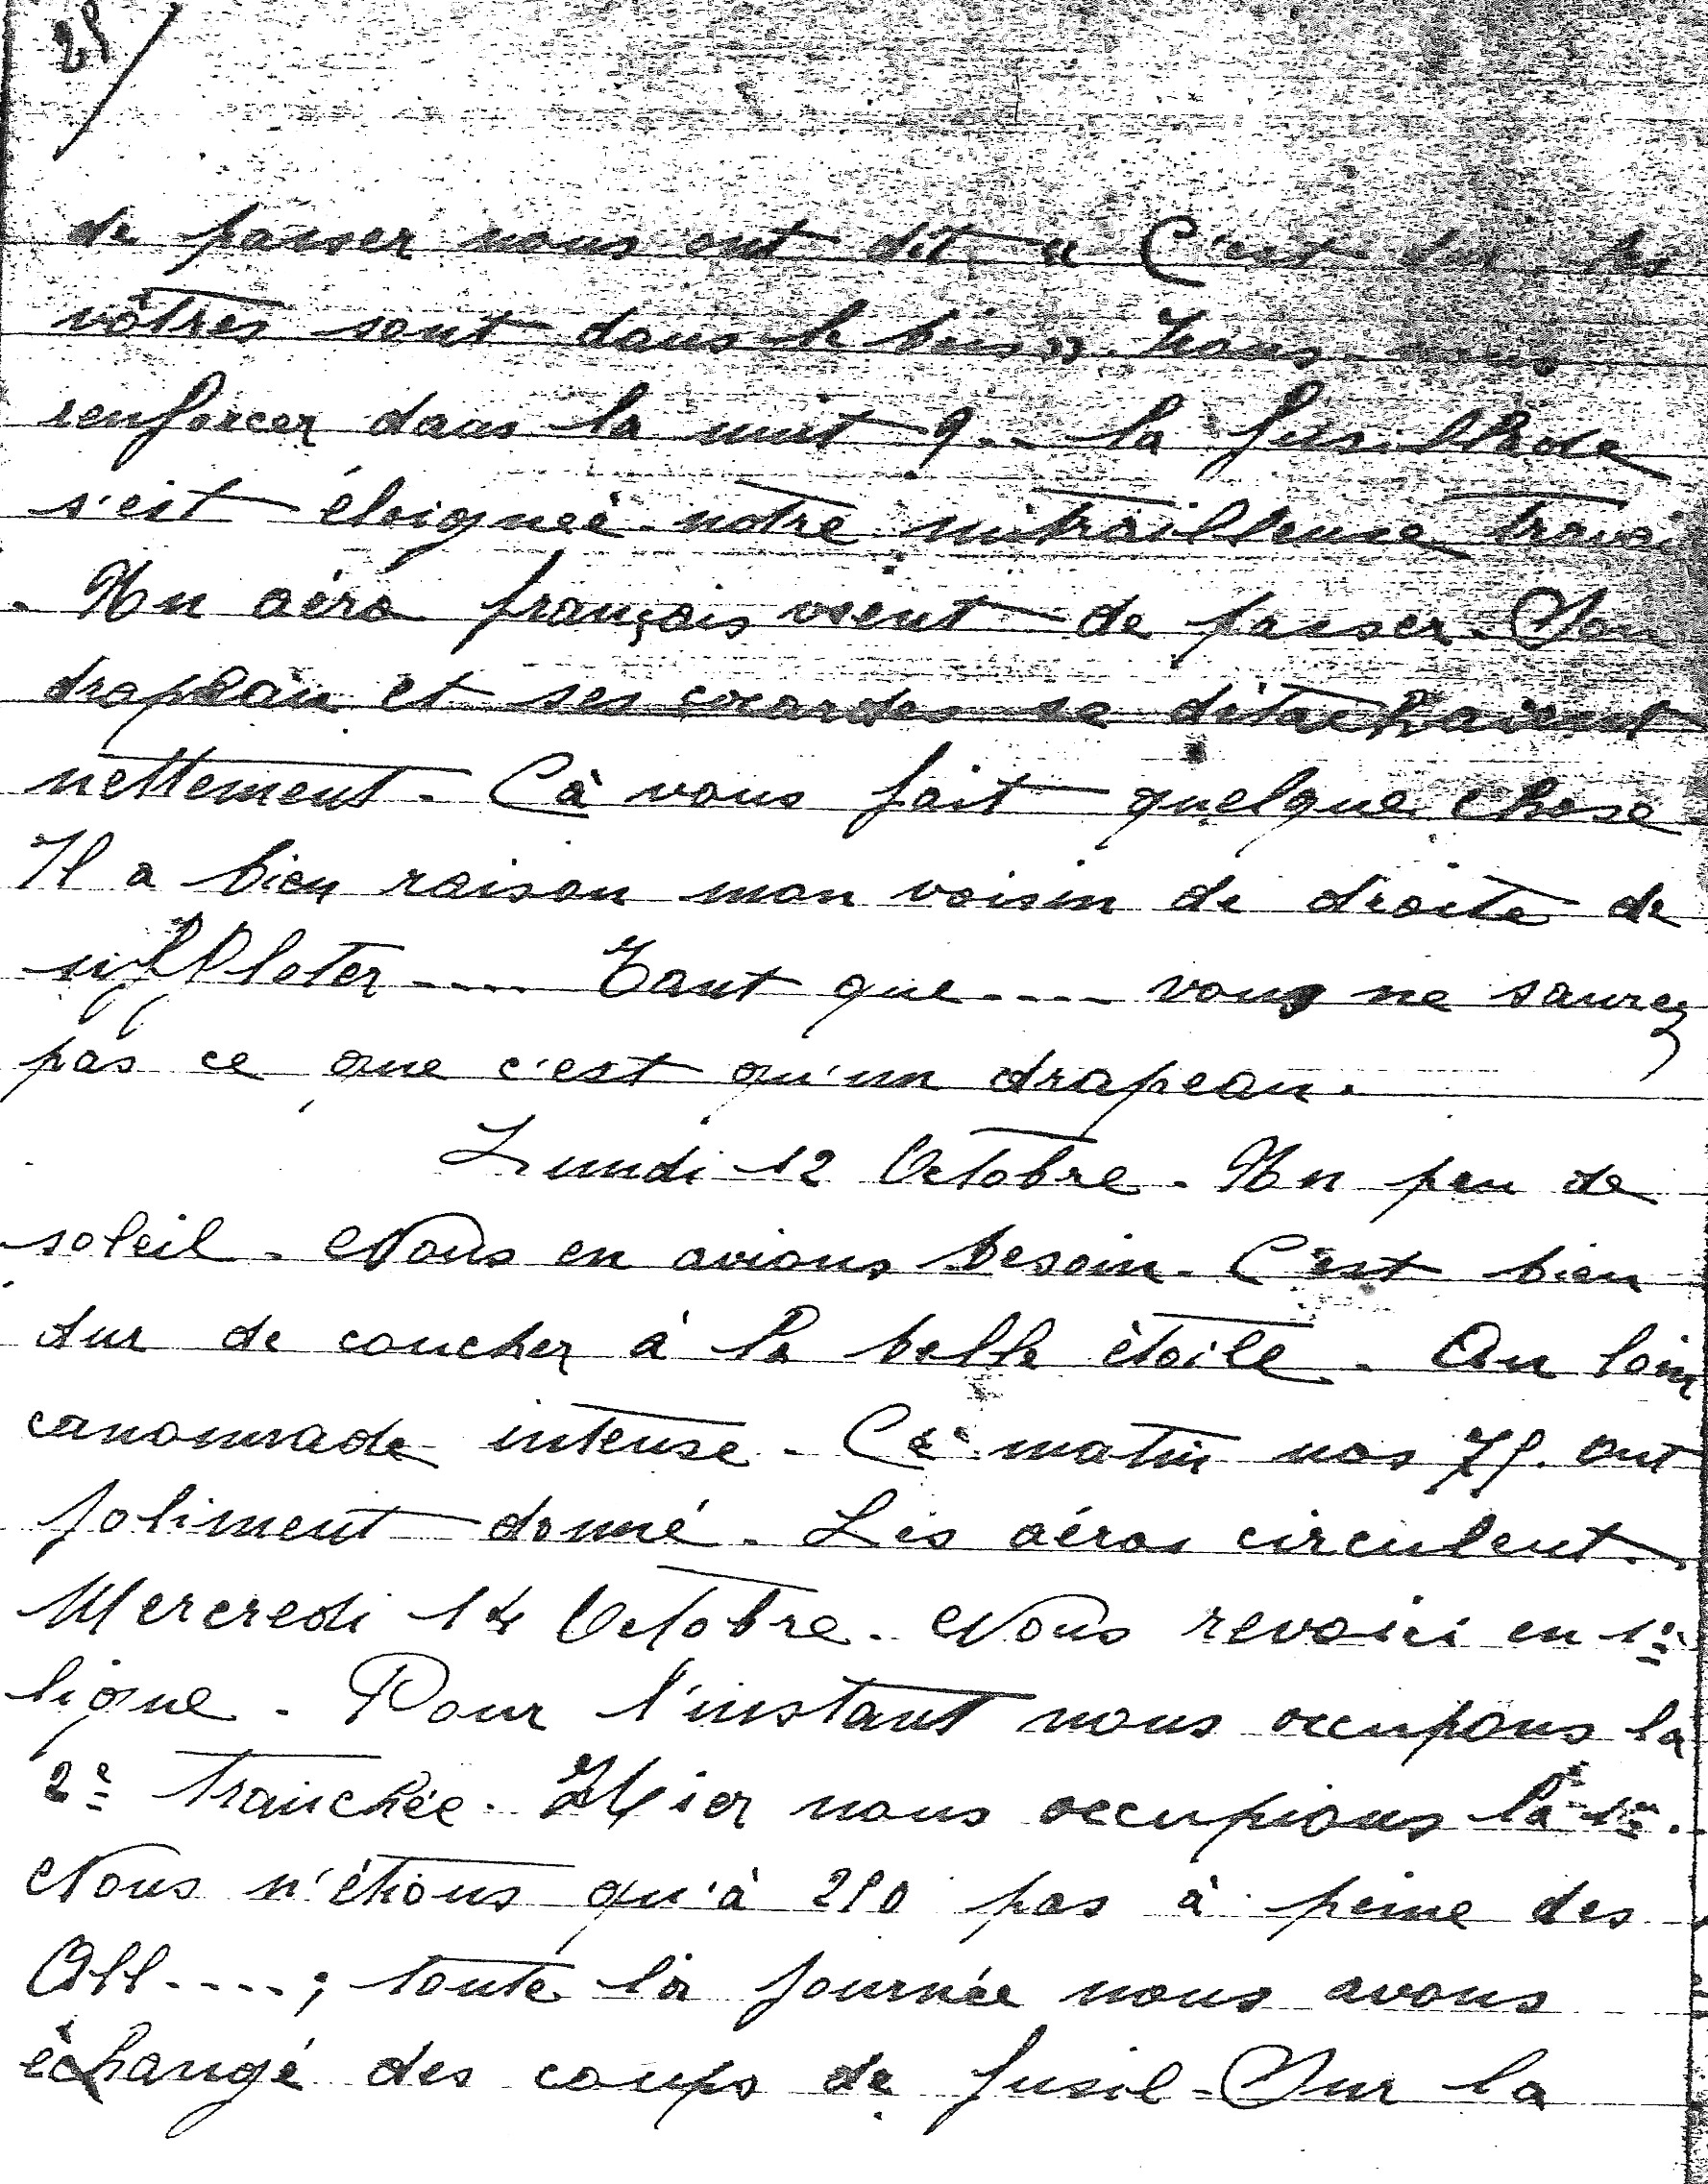 25/
de passer nous ont dit " C'est dur, les
vôtres sont dans le bois ". Irons-nous
renforcer dans la nuit ?.. la fusillade
s'est éloignée. notre mitrailleuse
. Un aéro français vient de passer. Son
drapeau et ses cocardes se détachaient
nettement. Cà vous fait quelque chose
Il a bien raison mon voisin de droite de
siffloter .... Tant que .... vous ne saurez
pas ce que c'est qu'un drapeau.
Lundi 12 Octobre. Un peu de
soleil. Nous en avions besoin. C'est bien
dur de coucher à la belle étoile. Au loin
canonnade intense. Ce matin nos 75. ont
joliment donné. Les aéros circulent.
Mercredi 14 Octobre. Nous revoici en 1e
ligne. Pour l'instant nous occupons la
2e tranchée. Hier nous occupions la 1re.
Nous n'étions qu'à 250 pas à peine des
All....; toute la journée nous avons
échangé des coups de fusil. Sur la